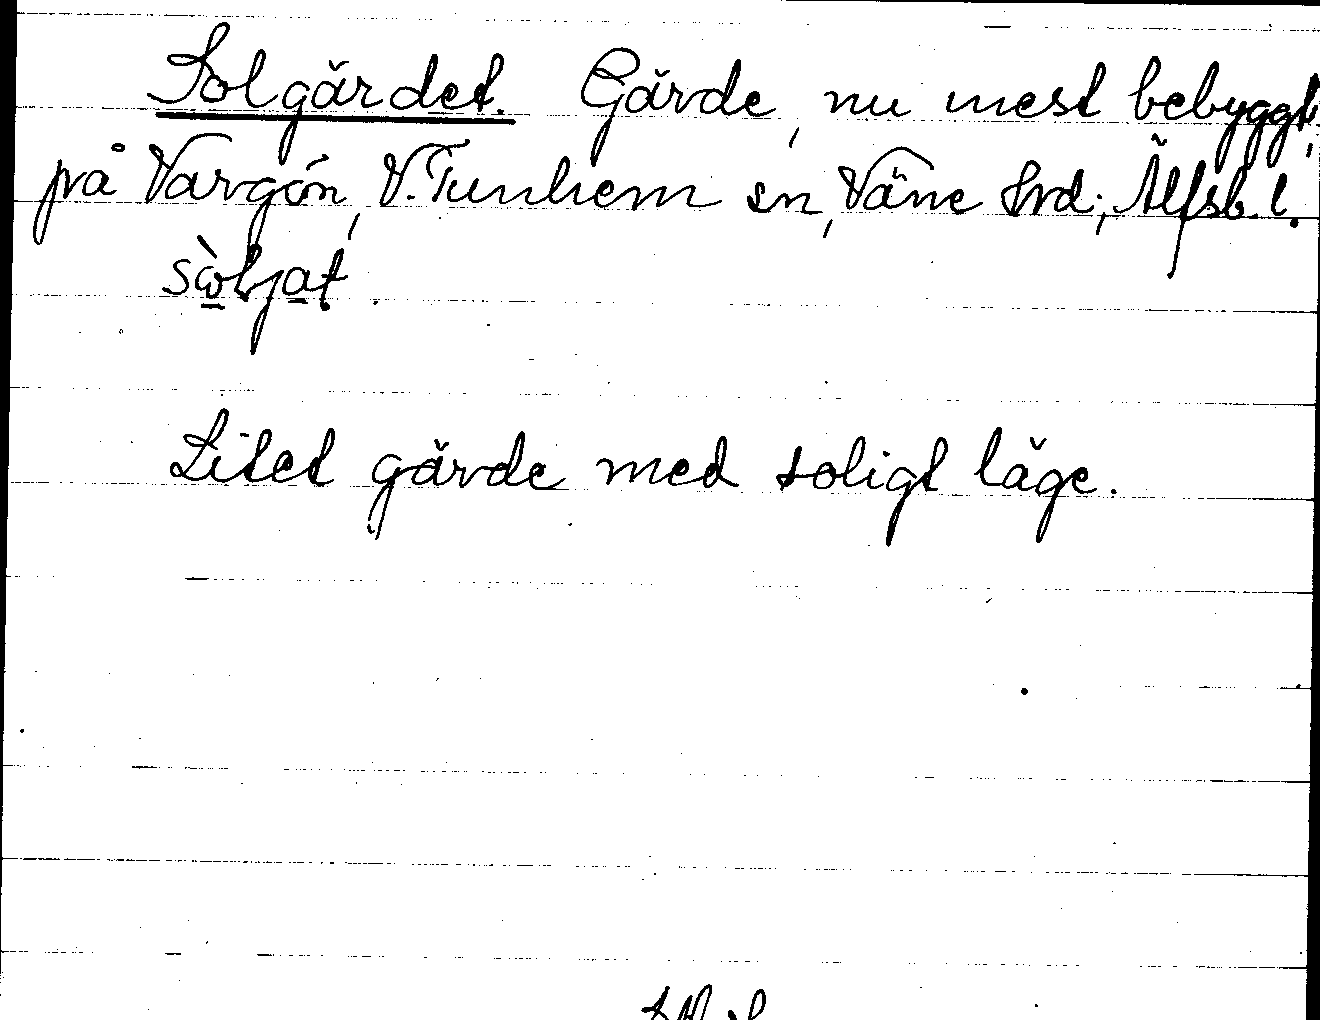 Solgärdet. Gärde, nu mest bebyggt,
på Vargön, V. Tunhem sn, Väne hrd; Älfsb. l.
Litet gärde med soligt läge.